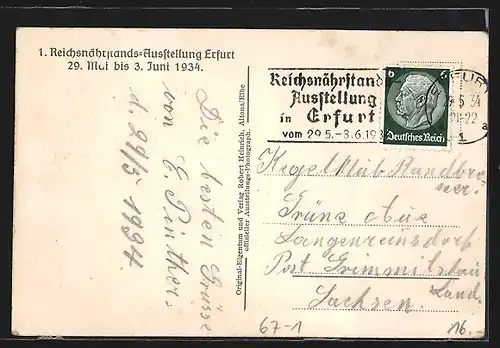 1. Reichsnährstands=Ausstellung Erfurt
29. Mai bis 3. Juni 1934.
Die besten Grüsse
von E. Pinther.
d. 29/5 1934.
Original-Eigentum und Verlag Robert Heinrich, Altona/Elbe
offizieller Ausstellungs-Photograph.
Reichsnährstand
Ausstellung
in Erfurt
vom 29.5.-3.6.193
6 6
Deutsches Reich
5 34
21-22
a
Kegelklub
Grüne Aue
Langenreinsdorf
Post Crimmitschau
Land.
Sachsen.
67-1
16.-